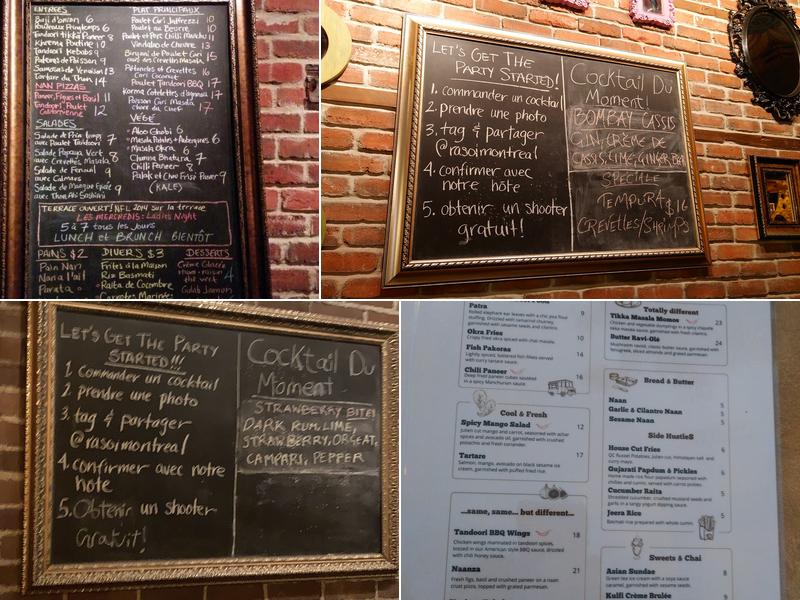 ENTRÉES
Bhaji d'onion 6
Rouleaux Printemps 6
Tandoori tikka Paneer 8
Kheema Poutine 10
Tandoori Kebabs 9
Pakoras de Poisson 9
Samosas de Venaison 13
Tartare du Thon 14
NAN PIZZAS
Paneer, Figues et Basil 11
Tandoori Poulet 12
Californienne
SALADES
Salade de Prin temps 7
avec Poulet Tandoori
Salade Papaya Vert 8
avec Crevettes Masala
Salade de Fenouil 9
avec Calmars
Salade de Mangue Épicé 9
avec Thon Ahi Sashimi
PLAT PRINCIPAUX
Poulet Cari Jalfrezzi 10
Poulet au Beurre 10
Poulet et Porc Chilli Manchu 11
Vindaloo de Chevre 13
Biryani de Poulet 15
Pétoncles et Crevettes 16
Cari Coconut
Poulet Tandoori BBQ 17
Korma Cotelettes d'agneau 17
Poisson Cari Masala
Choix du Chef 17
VÉGÉ
Aloo Ghobi 6
Masala Patates + Aubergines 6
Masala Okra 6
Channa Bhatura 7
Chilli Paneer 8
Palak et Chou Frisé Paneer 9
(KALE)
TERRACE OUVERT! NFL 2014 sur la terrace
LES MERCREDIS: Ladies Night
5 à 7 tous les Jours
LUNCH et BRUNCH BIENTÔT
PAINS $2
Pain Nan
Nan a l'ail
Parata
DIVERS $3
Frites à la Maison
Riz Basmati
Raita de Concombre
Carottes Marinées
DESSERTS
Crème Glacée
thé vert 4
Gulab Jamun
LET'S GET THE
PARTY STARTED!
1. commander un cocktail
2. prendre une photo
3. tag & partager
@rasoimontreal
4. confirmer avec
notre hôte
5. obtenir un shooter
gratuit!
Cocktail Du
Moment!
BOMBAY CASSIS
GIN, CRÈME DE
CASSIS, LIME, GINGER BEER
SPECIALE
TEMPURA $16
CREVETTES/SHRIMPS
LET'S GET THE PARTY
STARTED!!!
1 commander un cocktail
2 prendre une photo
3. tag & partager
@rasoimontreal
4. confirmer avec notre
hote
5. Obtenir un shooter
Gratuit!
Cocktail Du
Moment
STRAWBERRY BITE!
DARK RUM, LIME,
STRAWBERRY, ORGEAT,
CAMPARI, PEPPER
Patra 9
Rolled elephant ear leaves with a chic pea flour
stuffing. Drizzled with tamarind chutney,
garnished with sesame seeds, and cilantro.
Okra Fries 10
Crispy fried okra spiced with chai masala.
Fish Pakoras 14
Lightly spiced, battered fish fillets served
with curry tartare sauce.
Chili Paneer 16
Deep fried paneer cubes sautéed
in a spicy Manchurian sauce.
Cool & Fresh
Spicy Mango Salad 12
Julien cut mango and carrot, seasoned with achar
spices and avocado oil, garnished with crushed
pistachio and fresh coriander.
Tartare 17
Salmon, mango, avocado on black sesame ice
cream, garnished with puffed fried rice.
...same, same... but different...
Tandoori BBQ Wings 18
Chicken wings marinated in tandoori spices,
tossed in our American style BBQ sauce, drizzled
with chili honey sauce.
Naanza 21
Fresh figs, basil and crushed paneer on a naan
crust pizza, topped with grated parmesan.
Totally different
Tikka Masala Momos 23
Chicken and vegetable dumplings in a spicy chipotle
tikka masala sauce, garnished with cilantro.
Butter Ravi-Olé 24
Mushroom ravioli, classic butter sauce, garnished with
fenugreek, sliced almonds and grated parmesan.
Bread & Butter
Naan 5
Garlic & Cilantro Naan 5
Sesame Naan 5
Side HustleS
House Cut Fries 6
QC Russet Potatoes, julien cut, himalayan salt and
curry mayo.
Gujarati Papdum & Pickles 6
Home made rice flour papadum seasoned with
chillies and cumin, served with carrot pickles.
Cucumber Raita 5
Shredded cucumber, crushed mustard seeds and
garlic in a tangy yogurt dipping sauce.
Jeera Rice 5
Basmati rice prepared with whole cumin.
Sweets & Chai
Asian Sundae 8
Green tea ice cream with a soya sauce
caramel, garnished with sesame seeds.
Kulfi Crème Brulée 9